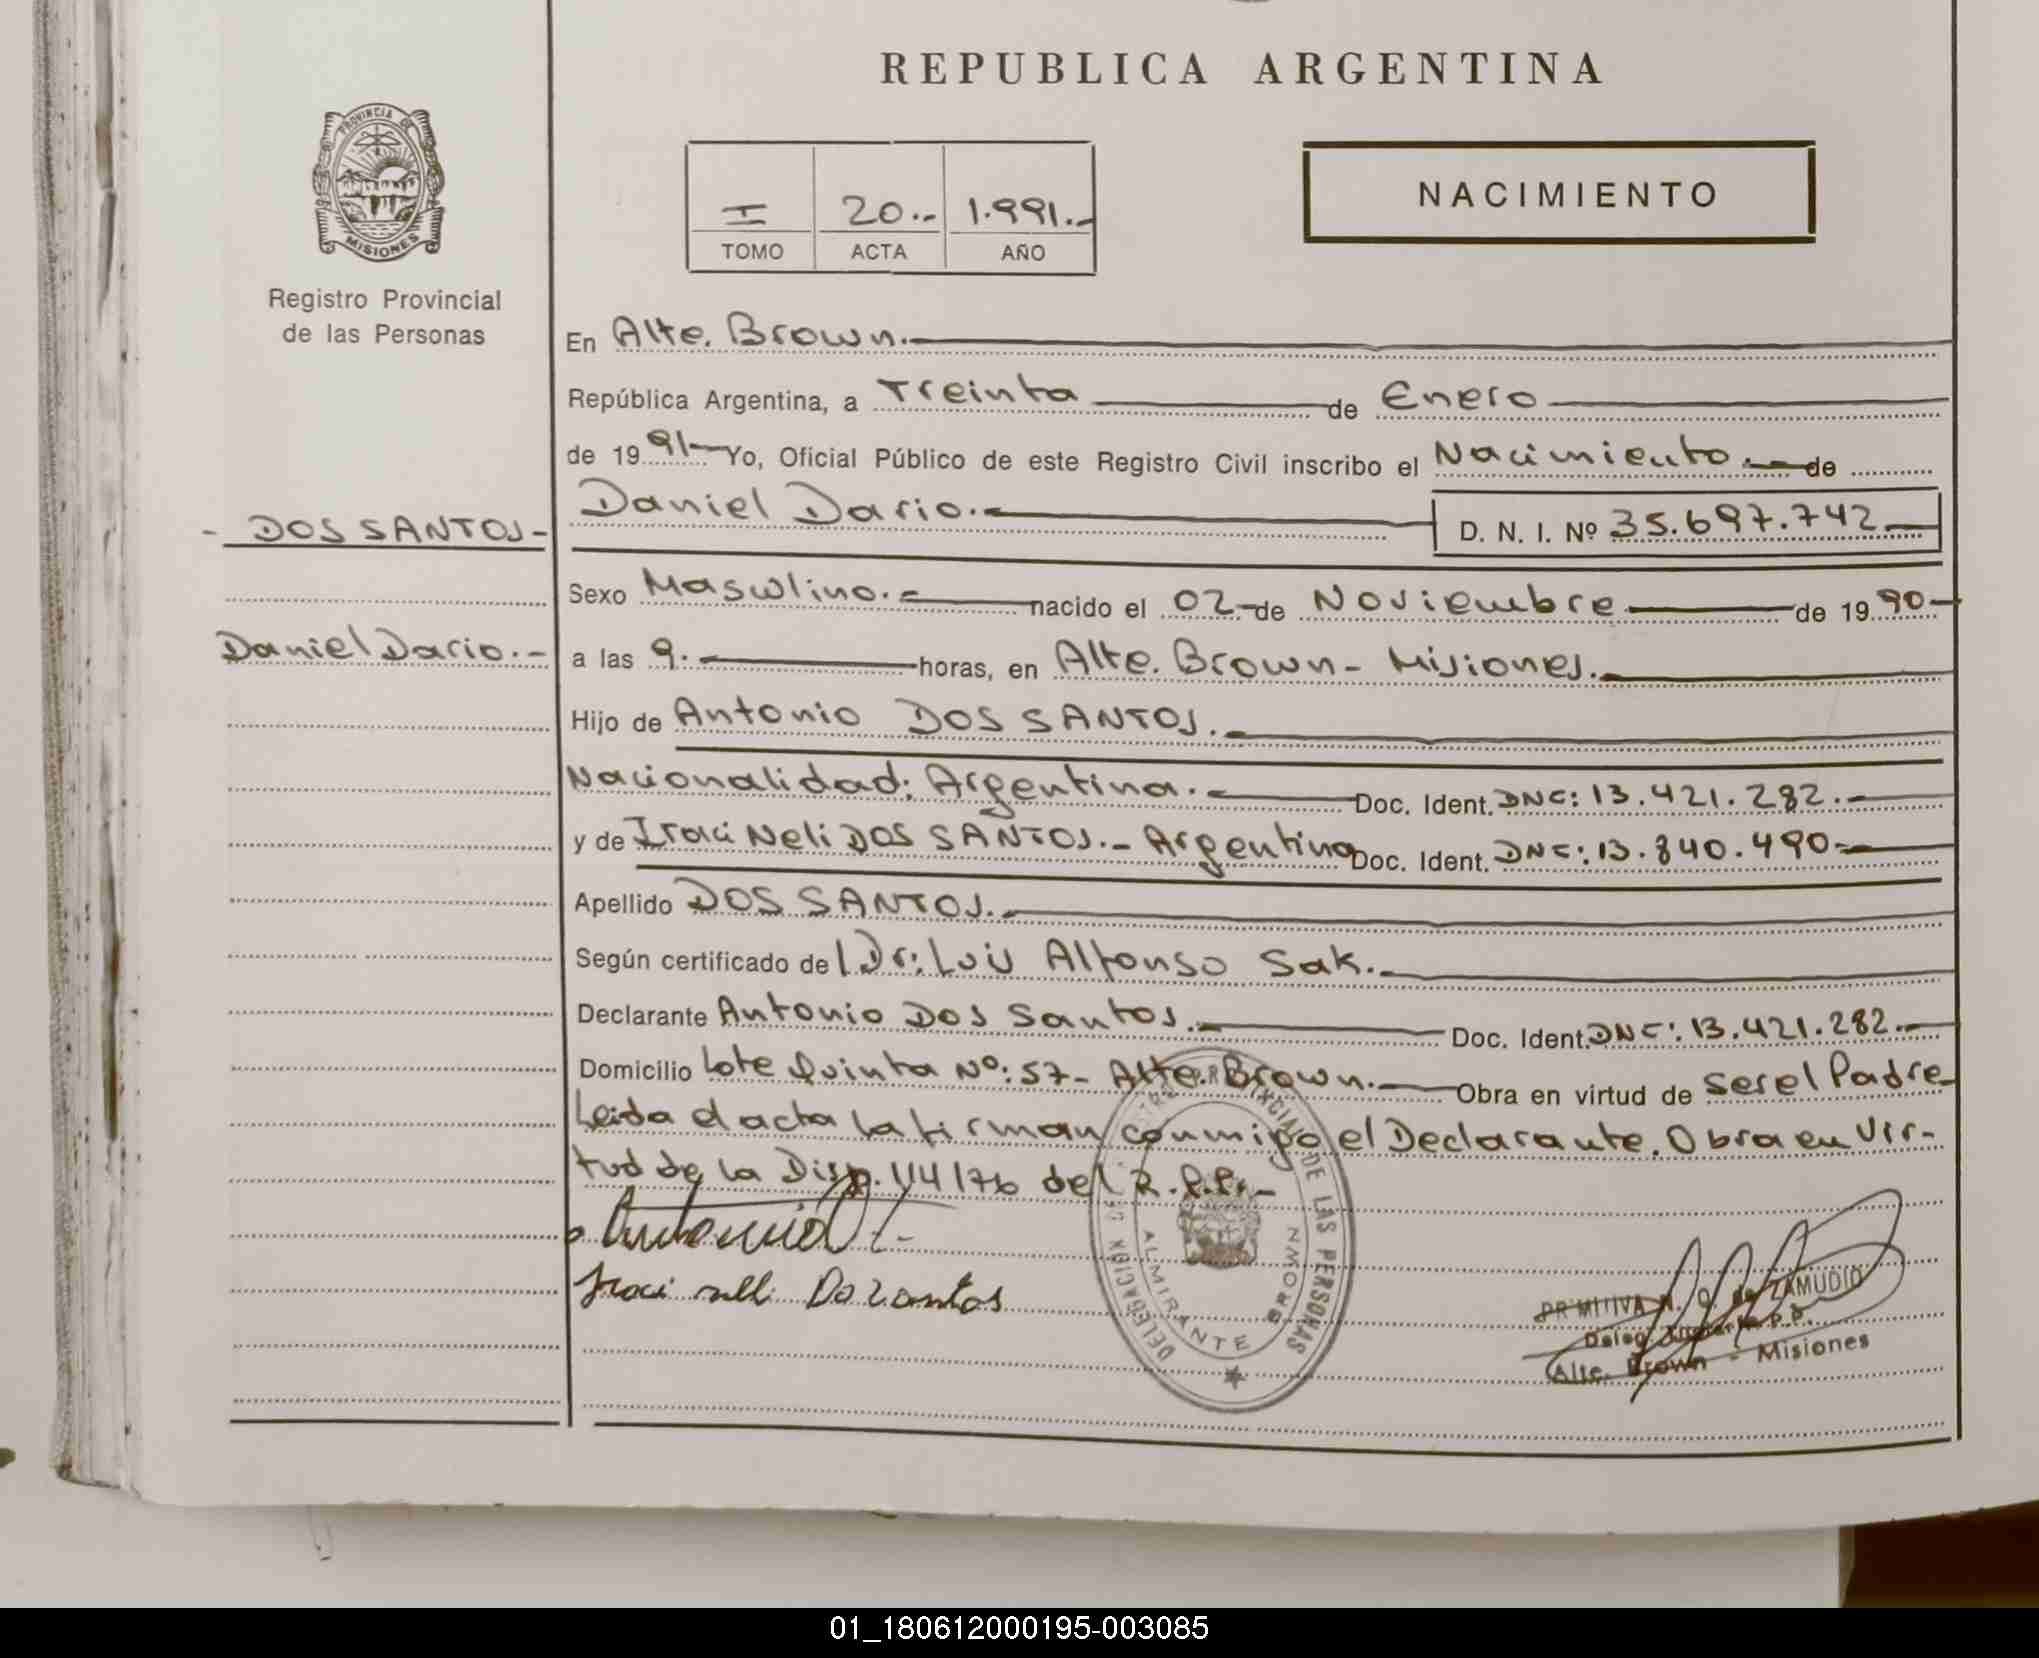 REPUBLICA ARGENTINA
PROVINCIA DE
MISIONES
Registro Provincial
de las Personas
I 20.- 1.991.-
TOMO ACTA AÑO
NACIMIENTO
En Alte. Brown.
República Argentina, a Treinta de Enero
de 1991- Yo, Oficial Público de este Registro Civil inscribo el Nacimiento.- de
- DOS SANTOS -
Daniel Dario.- D. N. I. Nº 35.697.742
Sexo Masculino.- nacido el 02- de Noviembre de 19 90-
Daniel Dario.-
a las 9.- horas, en Alte. Brown - Misiones.
Hijo de Antonio DOS SANTOS.
Nacionalidad: Argentina.- Doc. Ident. DNI: 13.421.282.-
y de Iraci Neli DOS SANTOS.- Argentina Doc. Ident. DNI: 13.840.490.-
Apellido DOS SANTOS.
Según certificado del Dr: Luis Alfonso Sak.
Declarante Antonio Dos Santos. Doc. Ident. DNI: 13.421.282.-
Domicilio Lote Quinta Nº: 57- Alte. Brown. Obra en virtud de ser el Padre-
Leida el acta la firman conmigo el Declarante. Obra en Vir-
tud de la Disp. 114/76 del R.P.P.-
Antonio
Iraci nelli Do zantos
DELEGACION DEL REGISTRO PROVINCIAL DE LAS PERSONAS
ALMIRANTE BROWN
PRIMITIVA N. O. de ZAMUDIO
Deleg. Titular R.P.P.
Alte. Brown - Misiones
01_180612000195-003085